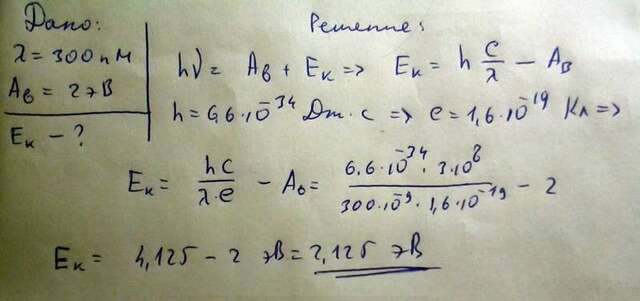 Дано:
λ = 300 нм
Aв = 2 эВ
Eк – ?
Решение:
hν = Aв + Eк => Eк = h c/λ – Aв
h = 6,6·10^-34 Дж·с => e = 1,6·10^-19 Кл =>
Eк = hc/λ·e – Aв = 6,6·10^-34 · 3·10^8 / 300·10^-9 · 1,6·10^-19 – 2
Eк = 4,125 – 2 эВ = 2,125 эВ